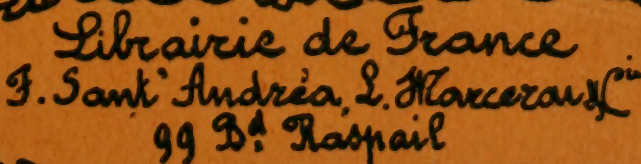 Librairie de France
F. Sant'Andréa, L. Marcerou & Cie
99 Bd. Raspail